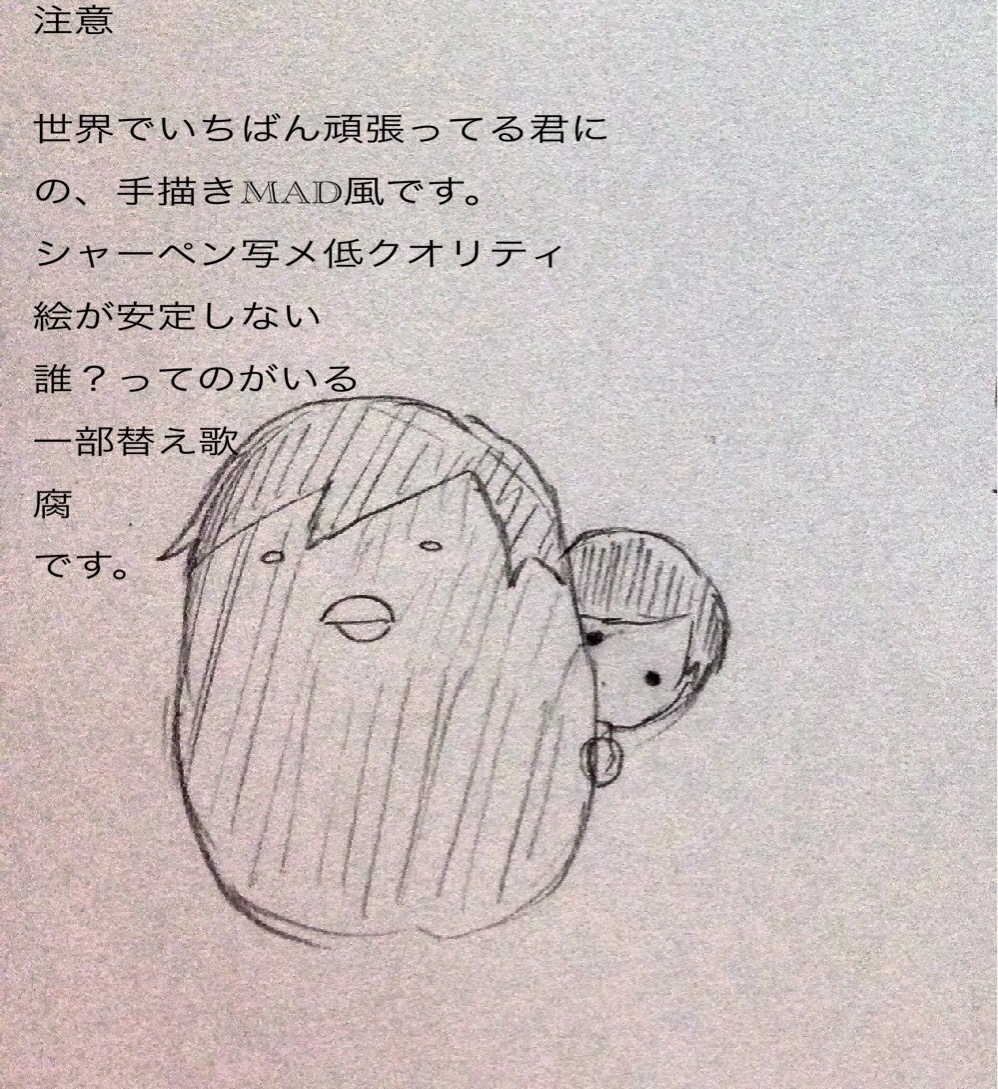 注意
世界でいちばん頑張ってる君に
の、手描きMAD風です。
シャーペン写メ低クオリティ
絵が安定しない
誰？ってのがいる
一部替え歌
腐
です。